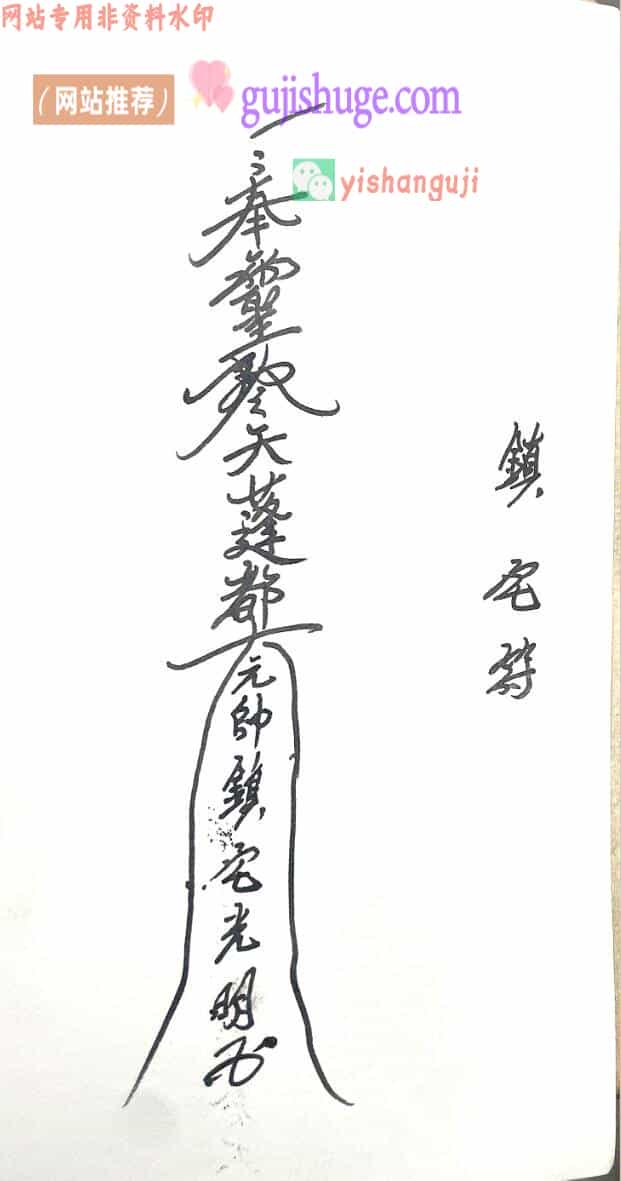 网站专用非资料水印
（网站推荐）
gujishuge.com
yishanguji
鎮宅符
奉
天蓬都
元帥鎮宅光明